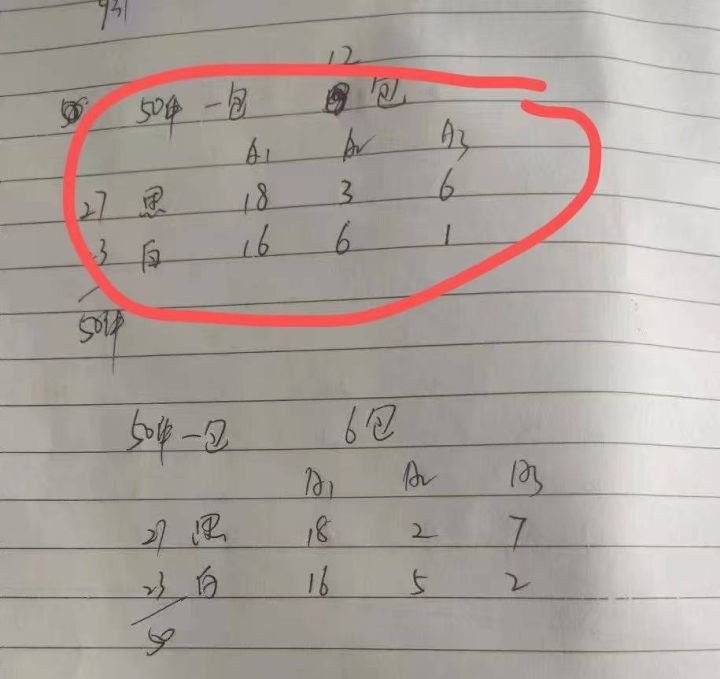 931
12
50件一包 包
A1 A2 A3
27 黑 18 3 6
23 白 16 6 1
50件
50件一包 6包
A1 A2 A3
27 黑 18 2 7
23 白 16 5 2
50